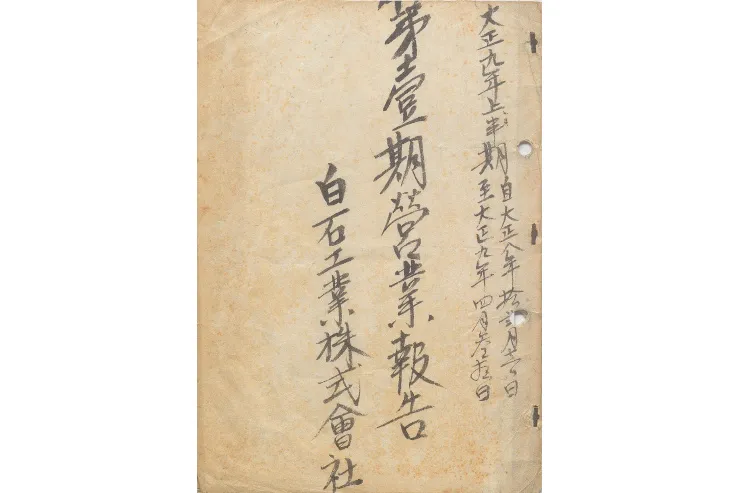 大正九年上半期
自大正八年拾弐月
至大正九年四月参拾日
第壹期營業報告
白石工業株式會社